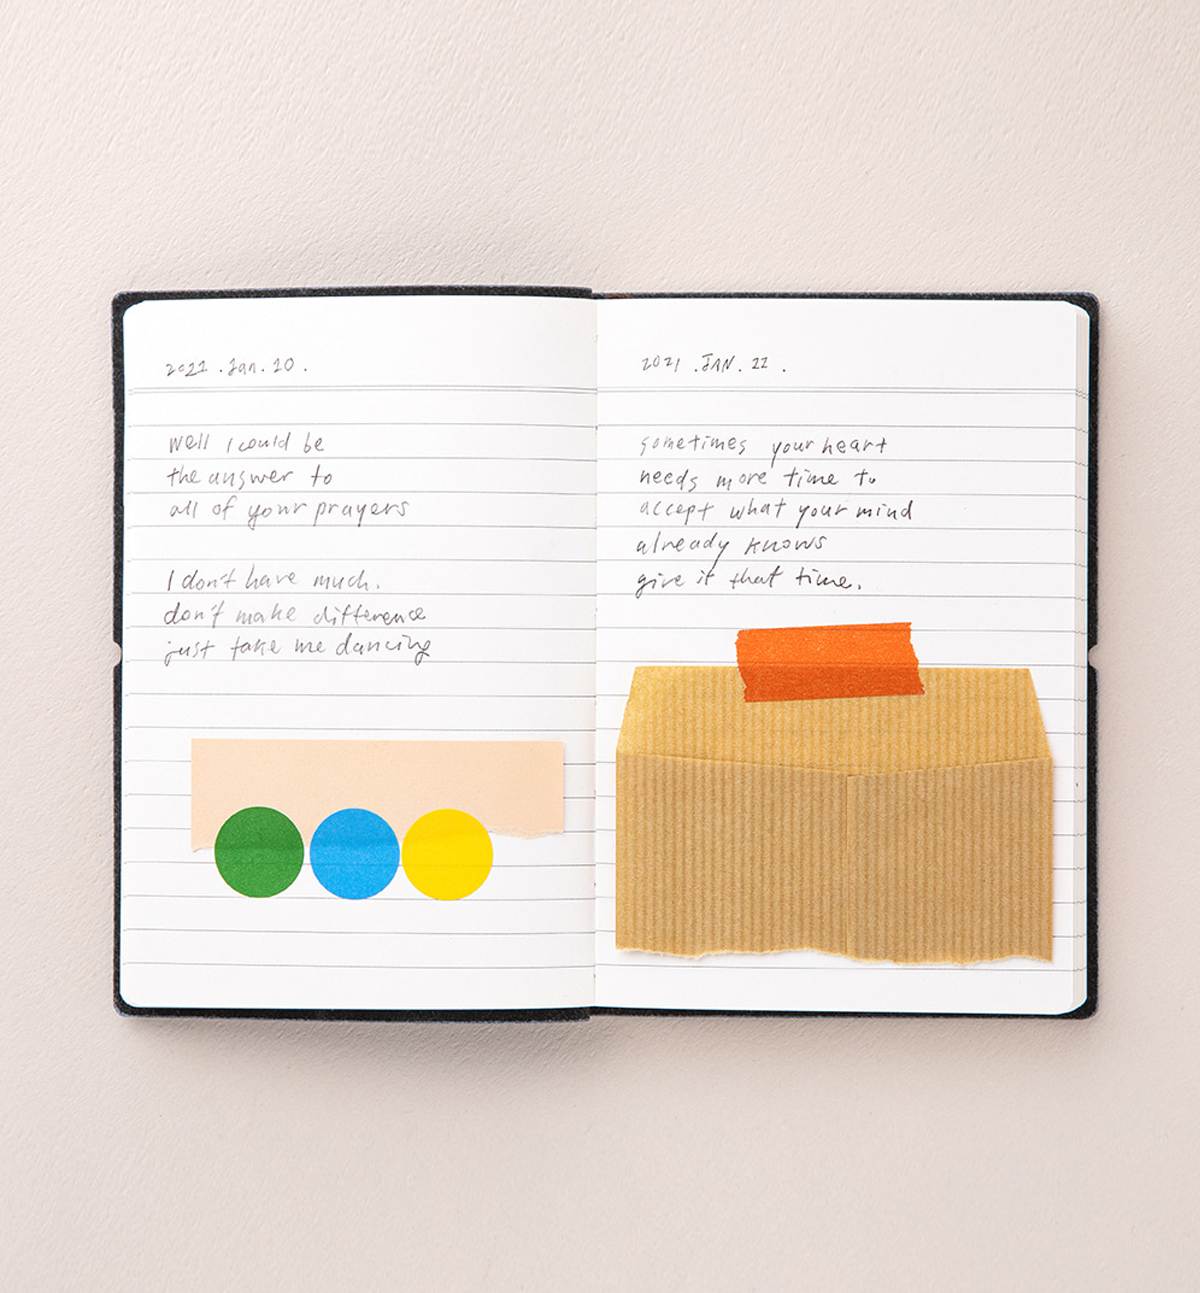 2021 . Jan . 10 .
well I could be
the answer to
all of your prayers
I don't have much.
don't make difference
just take me dancing
2021 . JAN . 22 .
sometimes your heart
needs more time to
accept what your mind
already knows
give it that time.